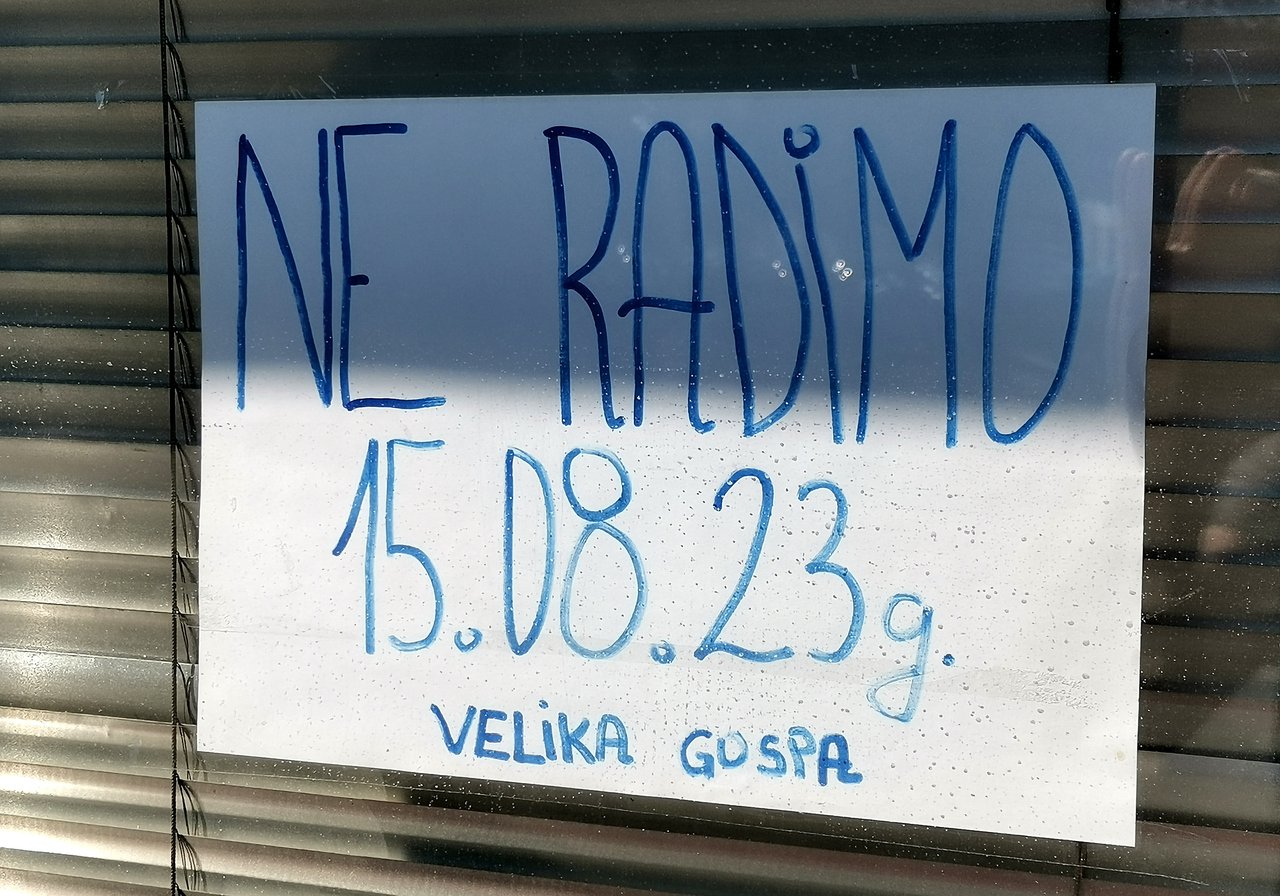 NE RADiMO
15.08.23g.
VELiKA GOSPA